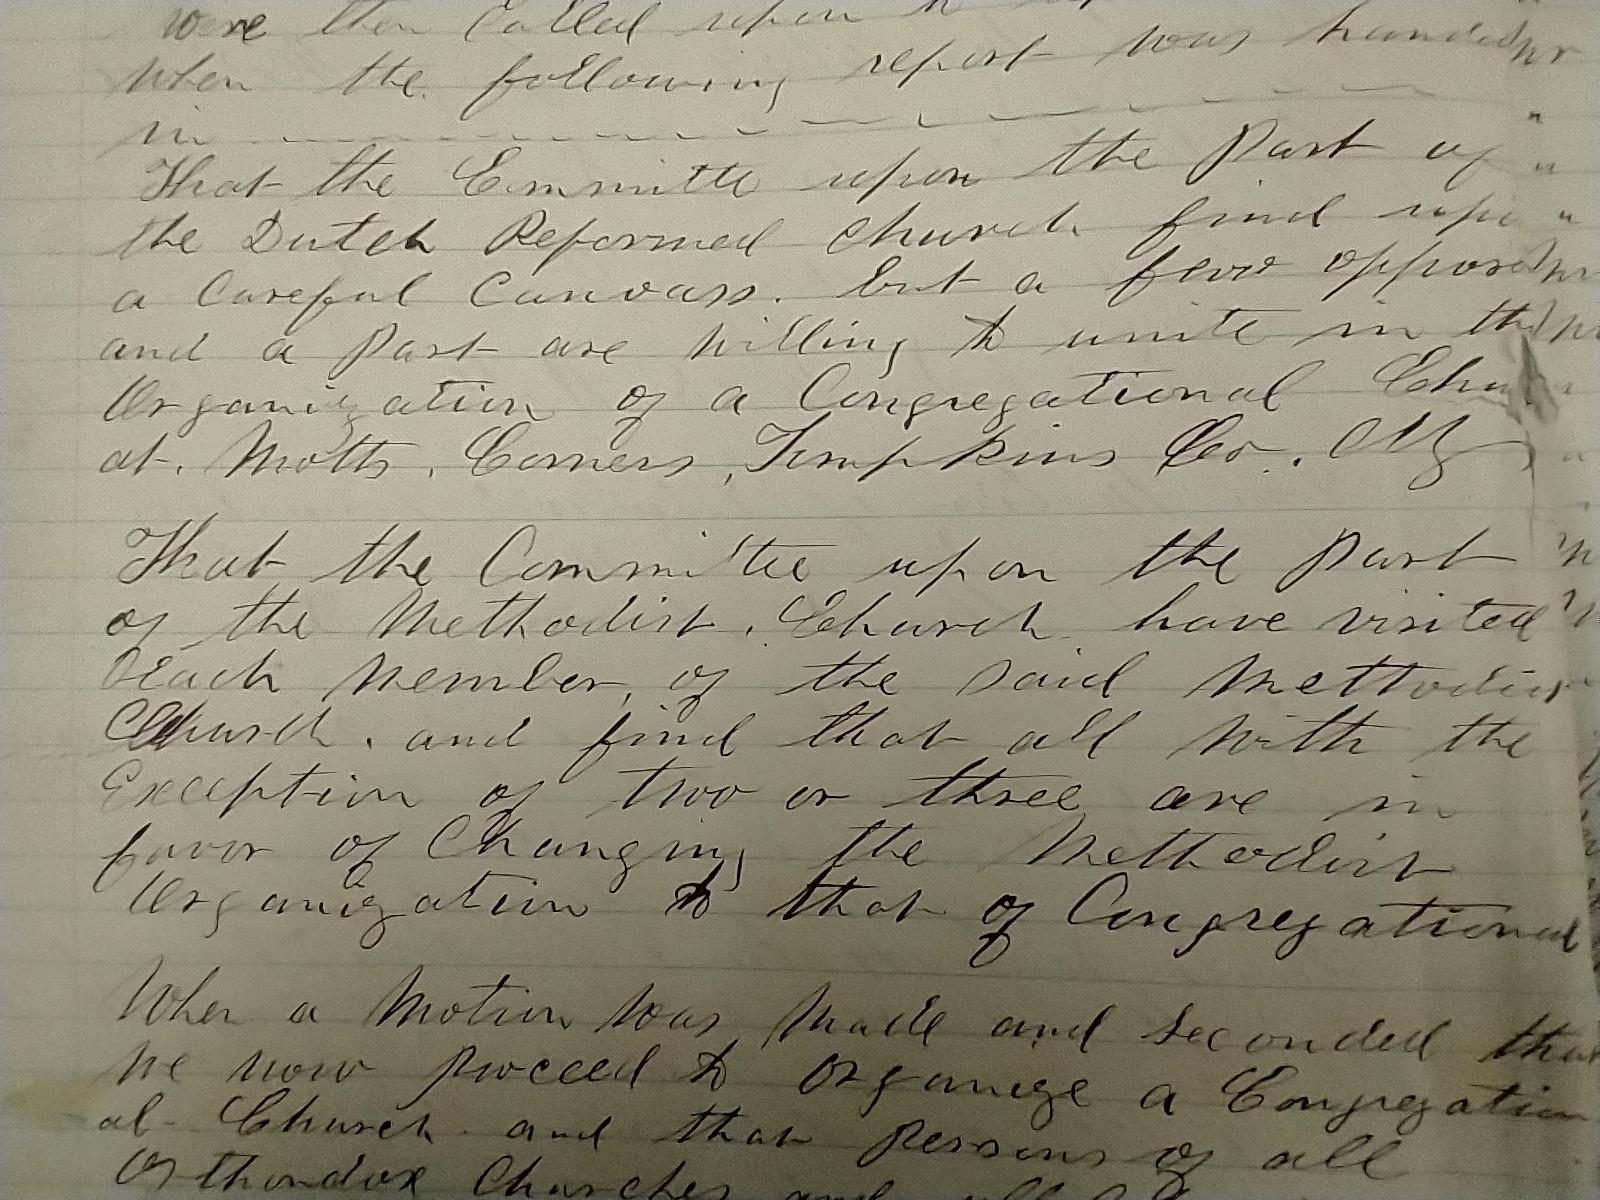 were then Called upon to
when the following report was handed
in
That the Committe upon the Part of
the Dutch Reformed church find upo
a Careful Canvass. but a few opposed
and a Part are willing to unite in the
Organization of a Congregational Chu
at. Motts. Corners, Tompkins Co. NY
That the Committee upon the Part
of the Methodist. Church have visited
Each Member, of the said Methodist
Church. and find that all with the
Exception of two or three are in
favor of Changing the Methodist
Organization to that of Congregational
When a Motion was Made and Seconded that
we now proceed to Organize a Congregation
al- Church and that Persons of all
Orthodox Churches and